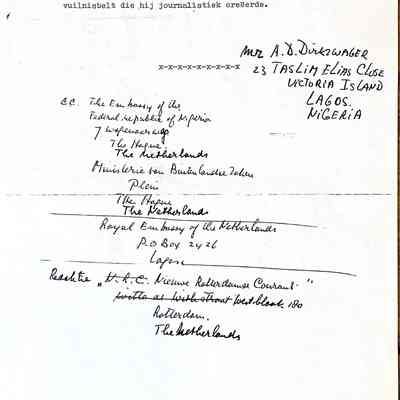 vuilnisbelt die hij journalistiek creëerde.
x-x-x-x-x-x-x-x-x
Mr A.D. DIRKZWAGER
23 TASLIM ELIAS CLOSE
VICTORIA ISLAND
LAGOS.
NIGERIA
c.c. The Embassy of the
Federal republic of Nigeria
7 wagenaarweg
The Hague.
The Netherlands
Ministerie van Buitenlandse Zaken
Plein
The Hague
The Netherlands
Royal Embassy of the Netherlands
P.O Box 2426
Lagos
Redaktie „N.R.C. Nieuwe Rotterdamse Courant"
witte de Withstraat Westblaak 180
Rotterdam.
The Netherlands